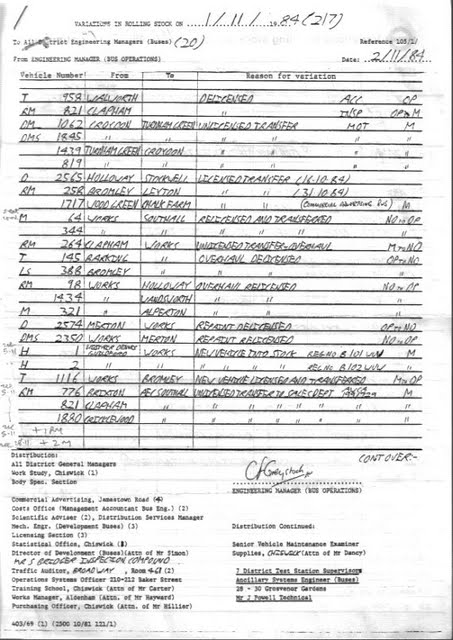 VARIATIONS IN ROLLING STOCK ON 1/11/ 1984 (217)
To All District Engineering Managers (Buses) (20) Reference 105/1/
From ENGINEERING MANAGER (BUS OPERATIONS) Date: 2/11/84
Vehicle Number From To Reason for variation
T 958 WALWORTH DELICENSED ACC OP
RM 821 CLAPHAM " INSP OP to M
DM 1062 CROYDON TURNHAM GREEN UNLICENSED TRANSFER MOT M
DMS 1845 " " " " "
1439 TURNHAM GREEN CROYDON " " "
819 " " " " "
D 2565 HOLLOWAY STOCKWELL LICENSED TRANSFER (16.10.84)
RM 258 BROMLEY LEYTON " (31.10.84)
1717 WOOD GREEN CHALK FARM " (COMMERCIAL ADVERTISING BUS) M
M 64 WORKS SOUTHALL RELICENSED AND TRANSFERRED NO to OP
344 " " " " " "
RM 264 CLAPHAM WORKS UNLICENSED TRANSFER-OVERHAUL M to NO
T 145 BARKING " OVERHAUL DELICENSED OP to NO
LS 388 BROMLEY " " " "
RM 98 WORKS HOLLOWAY OVERHAUL RELICENSED NO to OP
1434 " WANDSWORTH " " "
M 321 " ALPERTON " " "
D 2574 MERTON WORKS REPAINT DELICENSED OP to NO
DMS 2350 WORKS MERTON REPAINT RELICENSED NO to OP
H 1 GUILDFORD WORKS NEW VEHICLE INTO STOCK REG NO B101 WUV M
H 2 " " " REG NO B102 WUV "
T 1116 WORKS BROMLEY NEW VEHICLE LICENSED AND TRANSFERRED M to OP
RM 776 BRIXTON AEC SOUTHALL UNLICENSED TRANSFER TO SALES DEPT M
821 CLAPHAM " " " " " "
1880 CRICKLEWOOD " " " " " "
+1RM
+2M
CONT OVER:-
Distribution:
All District General Managers
Work Study, Chiswick (1)
Body Spec. Section
ENGINEERING MANAGER (BUS OPERATIONS)
Commercial Advertising, Jamestown Road
Costs Office (Management Accountant Bus Eng.) (2)
Scientific Adviser (2), Distribution Services Manager
Mech. Engr. (Development Buses) (3) Distribution Continued:
Licensing Section (3)
Statistical Office, Chiswick Senior Vehicle Maintenance Examiner
Director of Development (Buses)(Attn Mr Simon) Supplies, CHISWICK (Attn of Mr Dancy)
MR S BRIDGER INSPECTION COMPOUND
Traffic Auditor, BROADWAY, Room 461 (2) 7 District Test Station Supervisors
Operations Systems Officer 210-212 Baker Street Ancillary Systems Engineer (Buses)
Training School, Chiswick (Attn of Mr Carter) 28 - 30 Grosvenor Gardens
Works Manager, Aldenham (Attn of Mr Hayward) Mr J Powell Technical
Purchasing Officer, Chiswick (Attn of Mr Hillier)
403/69 (1) (2500 10/81 121/1)